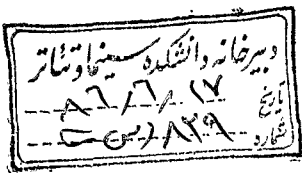 دبیرخانه دانشکده سینما و تئاتر
تاریخ ۸۶/۶/۱۷
شماره ۸۲۹